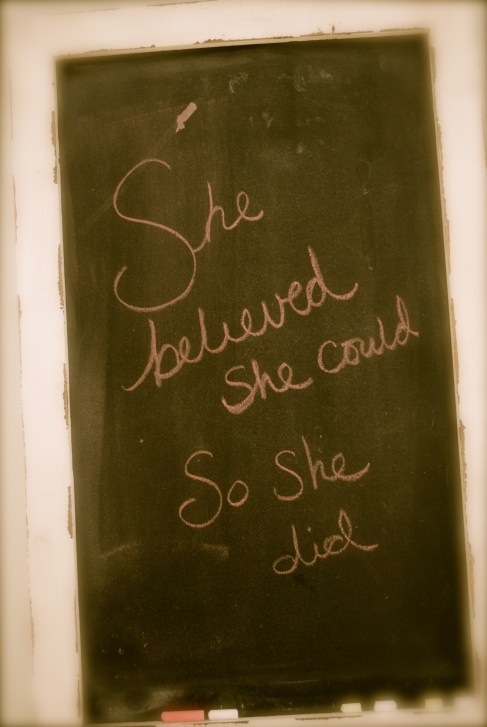 She
believed
She could
So She
did